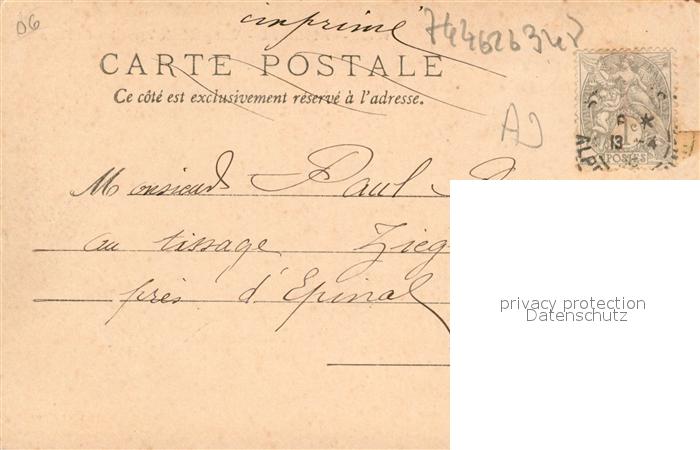 06
imprimé
7446263428
CARTE POSTALE
Ce côté est exclusivement réservé à l'adresse.
AJ
1c
POSTES
13 -4
ALP
Monsieur Paul
au tissage Zieg
près d'Epinal
privacy protection
Datenschutz